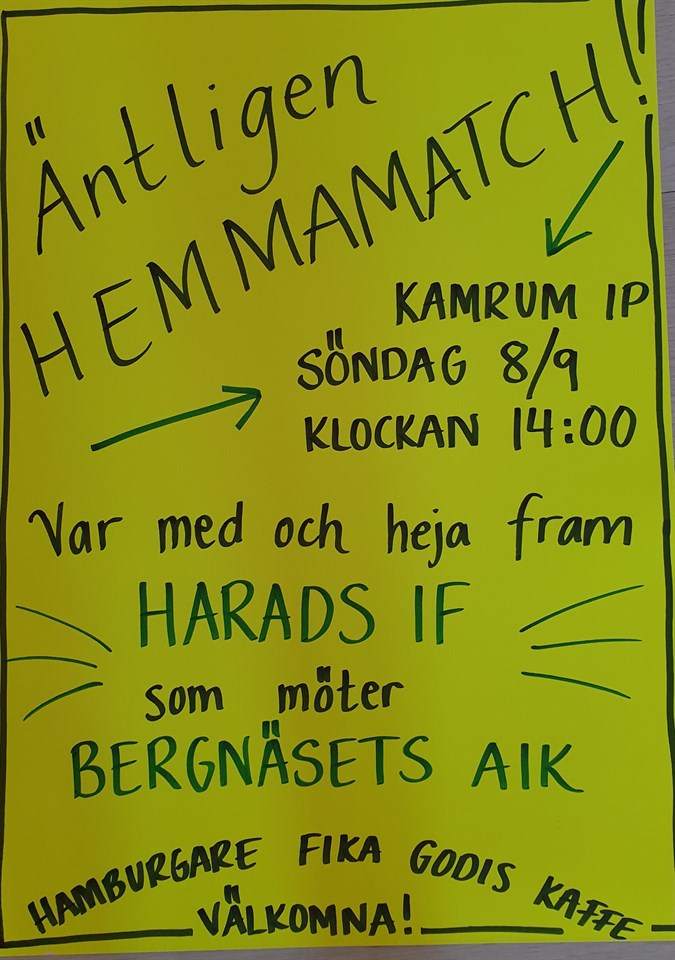 Äntligen
HEMMAMATCH!
KAMRUM IP
SÖNDAG 8/9
KLOCKAN 14:00
Var med och heja fram
HARADS IF
som möter
BERGNÄSETS AIK
HAMBURGARE FIKA GODIS KAFFE
VÄLKOMNA!